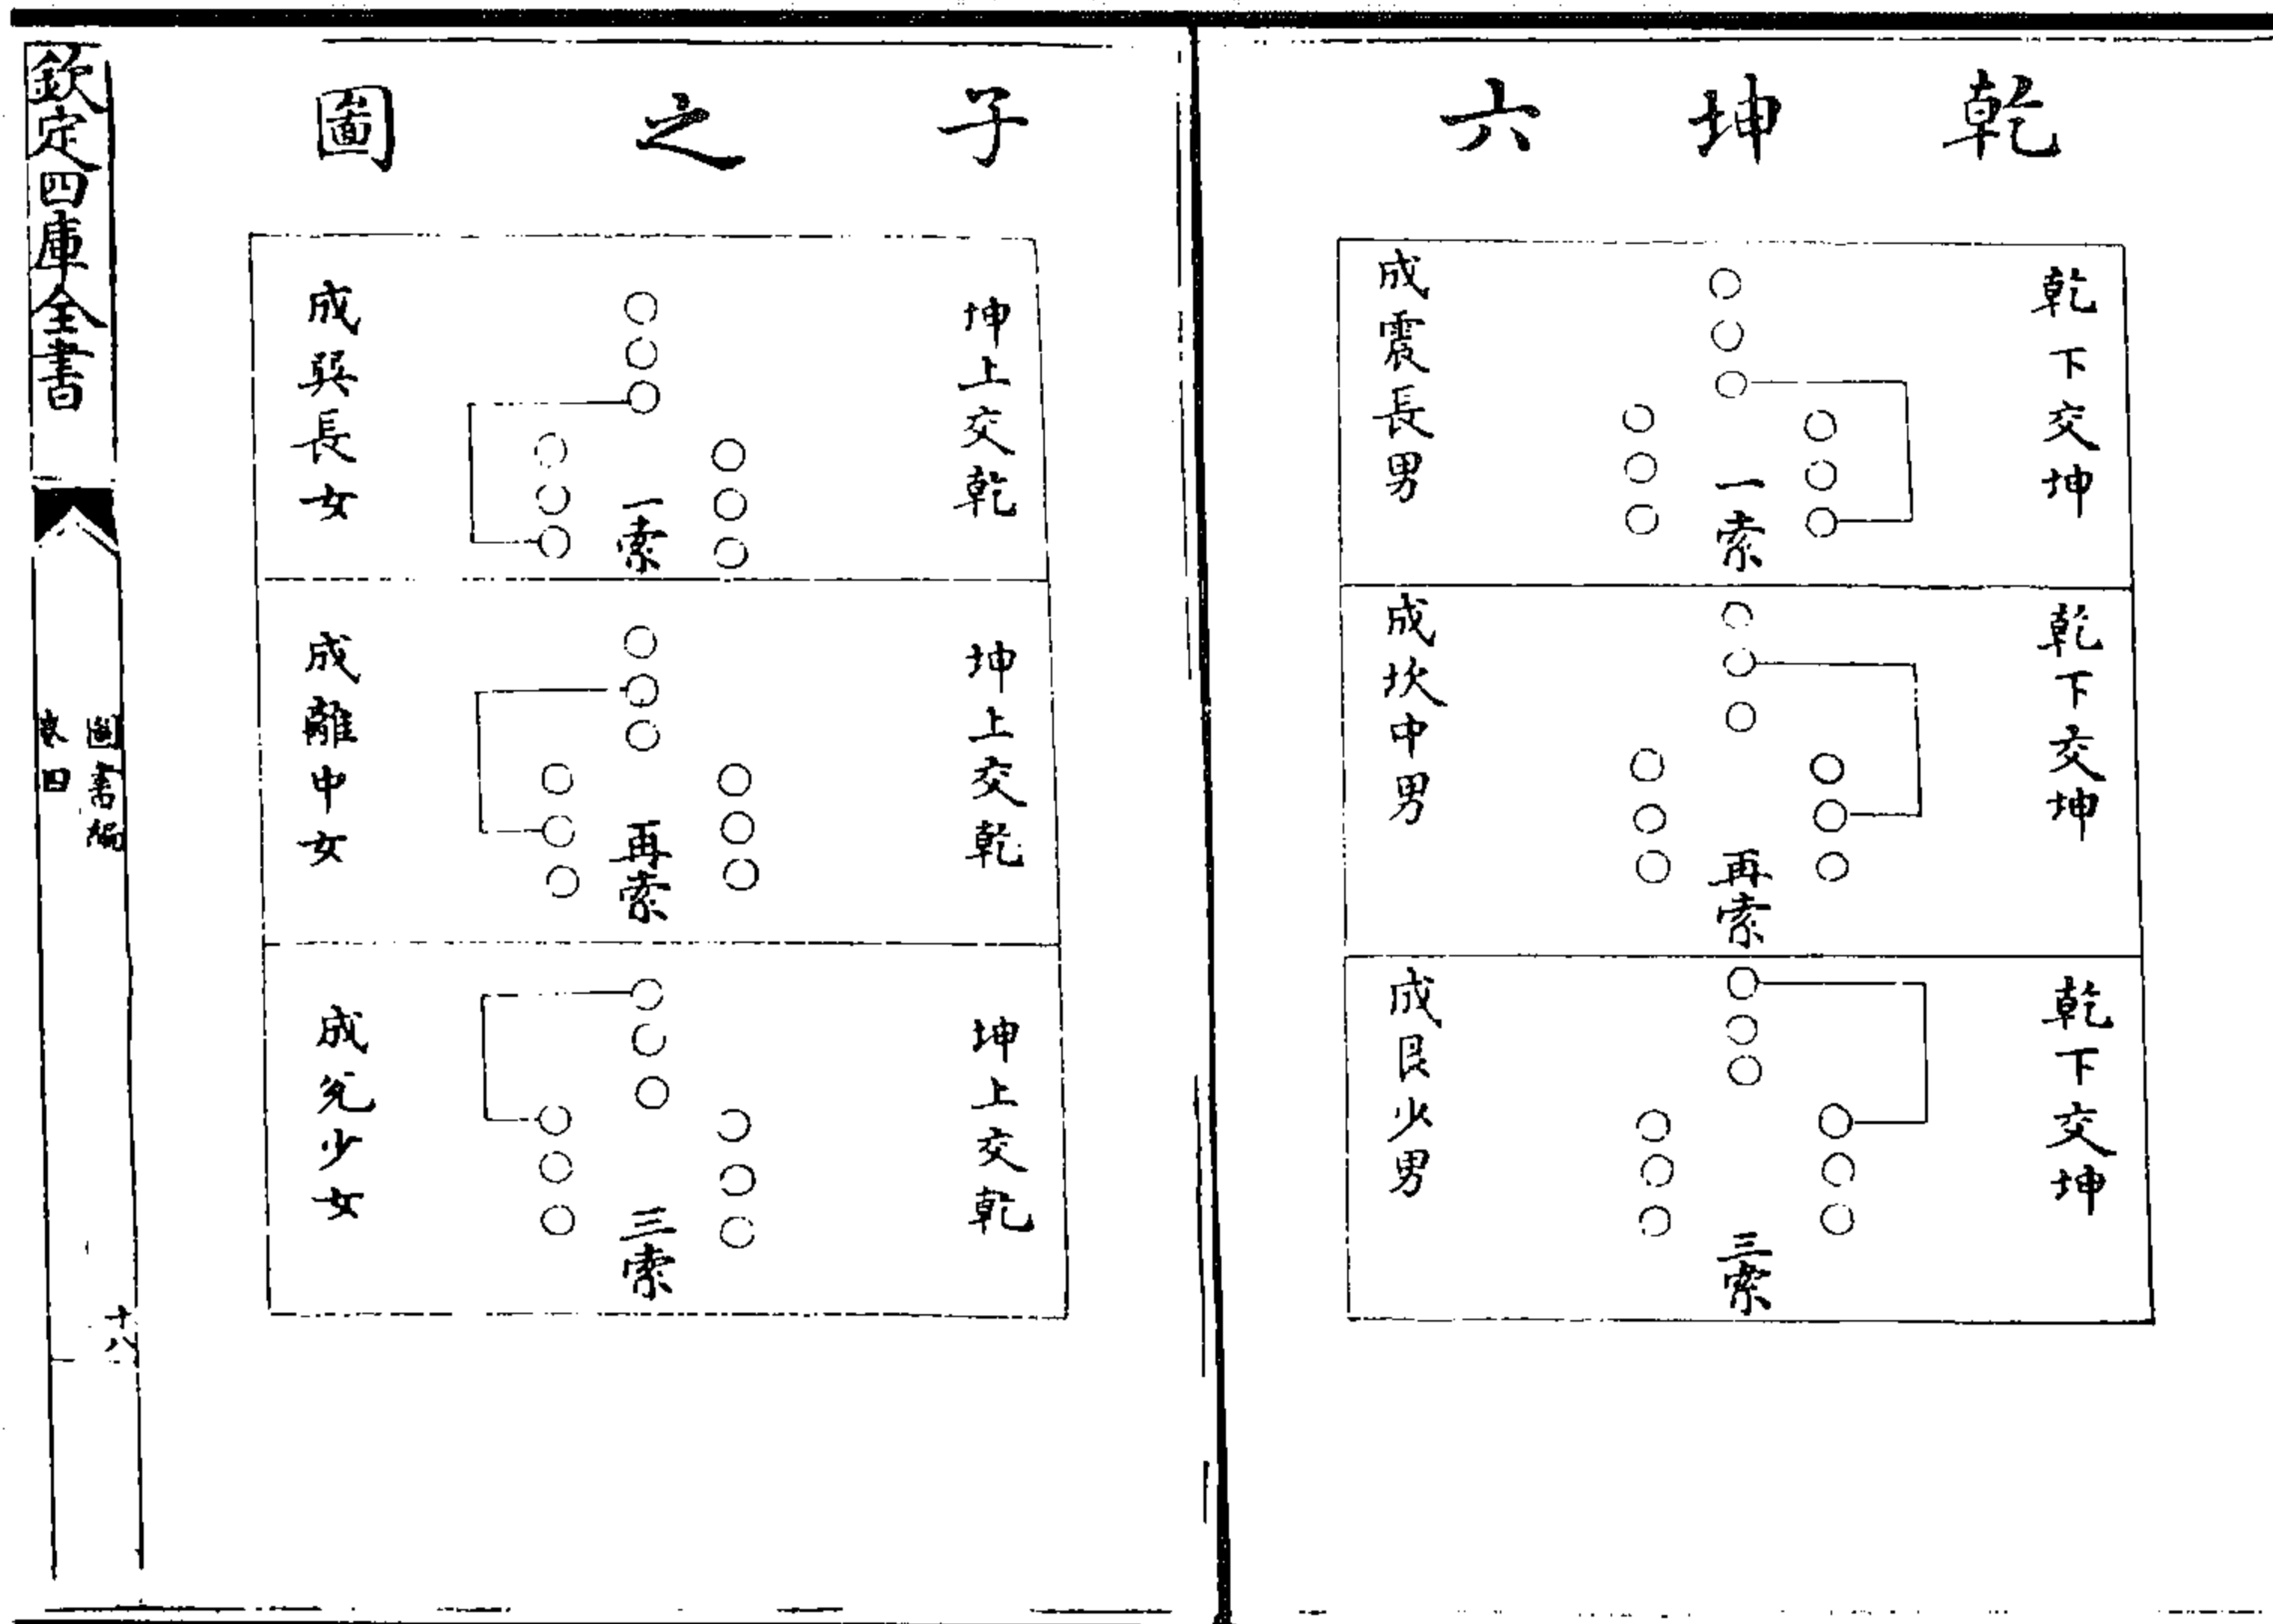 乾坤六
乾下交坤
一索
成震長男
乾下交坤
再索
成坎中男
乾下交坤
三索
成艮少男
子之圖
坤上交乾
一索
成巽長女
坤上交乾
再索
成離中女
坤上交乾
三索
成兌少女
欽定四庫全書
圖書編
卷四
十八